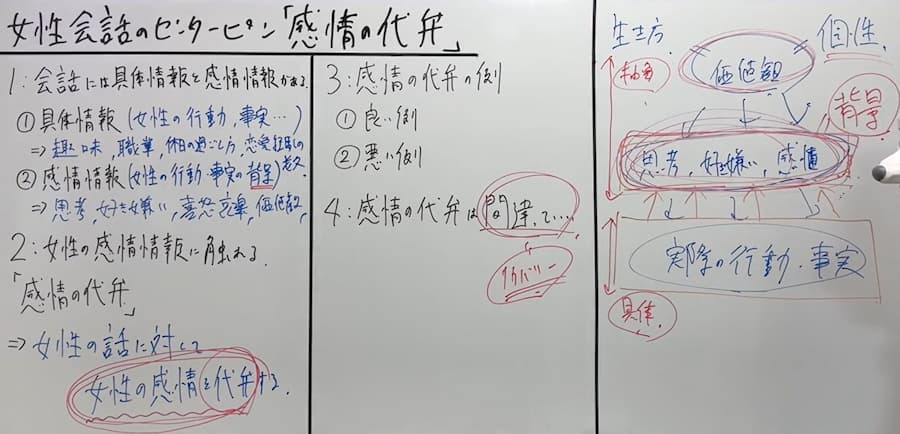 女性会話のセンターピン「感情の代弁」
1:会話には具体情報と感情情報がある
①具体情報(女性の行動,事実…)
⇒趣味,職業,休日の過ごし方,恋愛経験の
②感情情報(女性の行動・事実の背景)
⇒思考,好き嫌い,喜怒哀楽,価値観,
2:女性の感情情報に触れる.
「感情の代弁」
⇒女性の話に対して
女性の感情を代弁する.
3:感情の代弁の例
①良い例
②悪い例
4:感情の代弁は間違って…
リカバリー
生き方
個性
抽象
価値観
背景
思考,好き嫌い,感情
実際の行動・事実
具体.